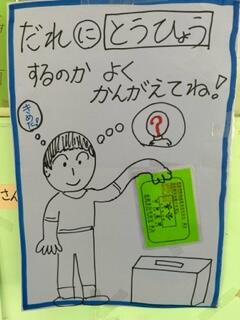 だれに とうひょう
するのか よく
かんがえてね!
きめた!
?
さん